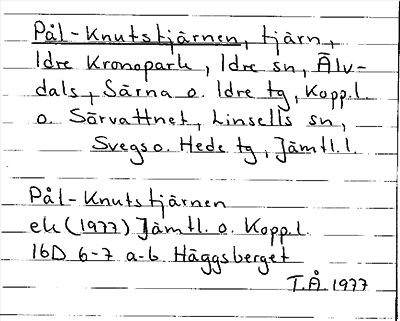 Pål-Knutstjärnen, tjärn,
Idre Kronopark, Idre sn, Älv-
dals, Särna o. Idre tg, Kopp.l.
o. Sörvattnet, Linsells sn,
Svegs o. Hede tg, Jämtl.l.
Pål-Knutstjärnen
ek (1977) Jämtl. o. Kopp.l.
16D 6-7 a-b Häggsberget
T.Å 1977